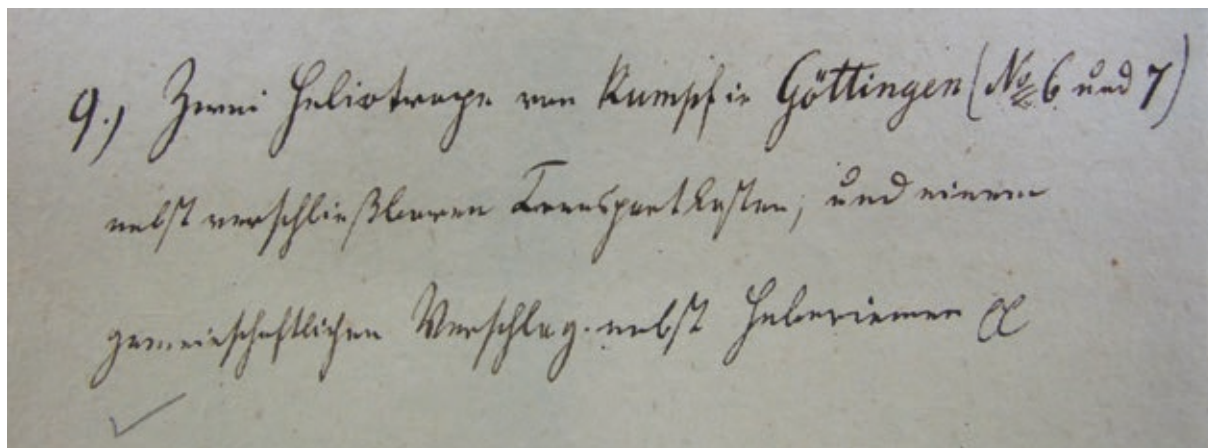 9.) Zwei Heliotrope von Rumpf in Göttingen (No 6 und 7)
nebst verschließbaren Transportkasten, und einem
gemeinschaftlichen Verschlag nebst Heberiemen